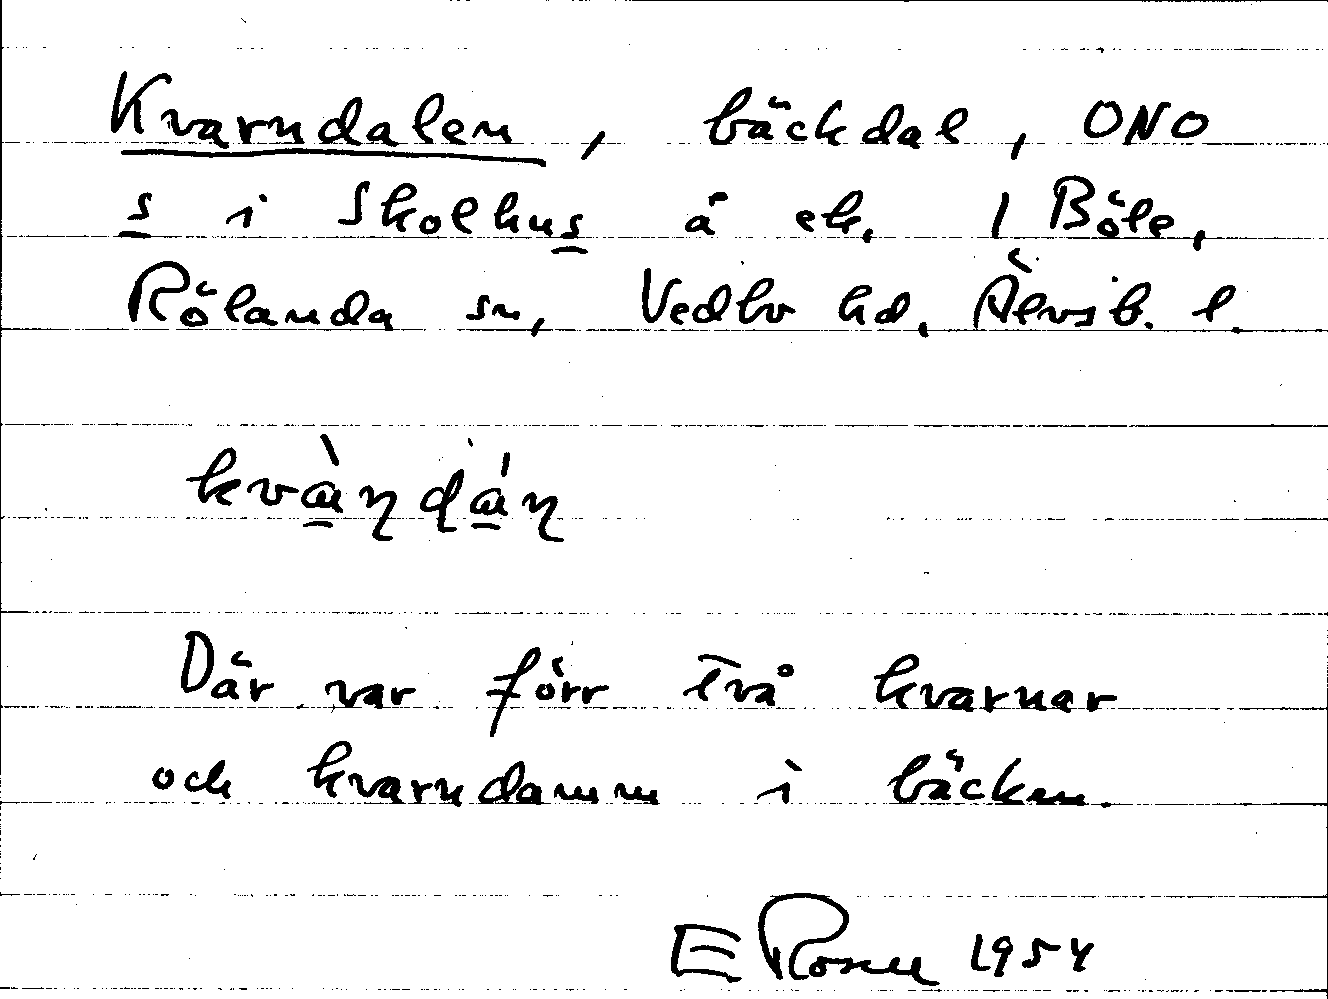 Kvarndalen, bäckdal, ONO
s i Skolhus å ek. 1 Böle,
Rölanda sn, Vedbo hd. Älvsb. l.
Där var förr två kvarnar
och kvarndamm i bäcken.
E Rosell 1954